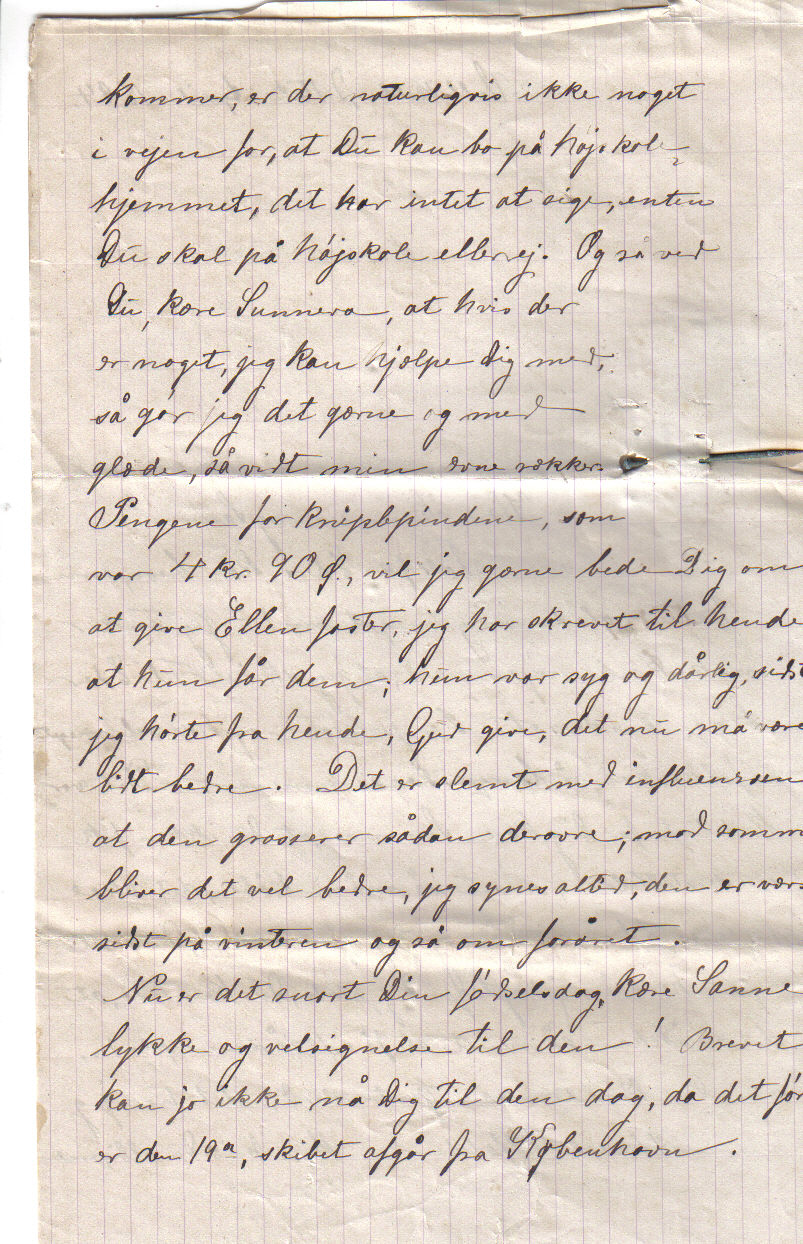 kommer, er der naturligvis ikke noget
i vejen for, at Du kan bo på højskole-
hjemmet, det har intet at sige, enten
Du skal på højskole eller ej. Og så ved
Du, kære Sunneva, at hvis der
er noget, jeg kan hjælpe Dig med,
så gør jeg det gærne og med
glæde, så vidt min evne rækker.
Pengene for kniplepindene, som
var 4 kr. 90 Ø., vil jeg gærne bede Dig om
at give Ellen faster, jeg har skrevet til hende
at hun får dem; hun var syg og dårlig, sidst
jeg hørte fra hende, Gud give, det nu må være
lidt bedre. Det er slemt med influenzaen
at den grasserer sådan derovre; mod somm
bliver det vel bedre, jeg synes altid, den er vær
sidst på vinteren og så om foråret.
Nu er det snart Din fødselsdag, kære Sanne
lykke og velsignelse til den! Brevet
kan jo ikke nå Dig til den dag, da det før
er den 19a, skibet afgår fra København.